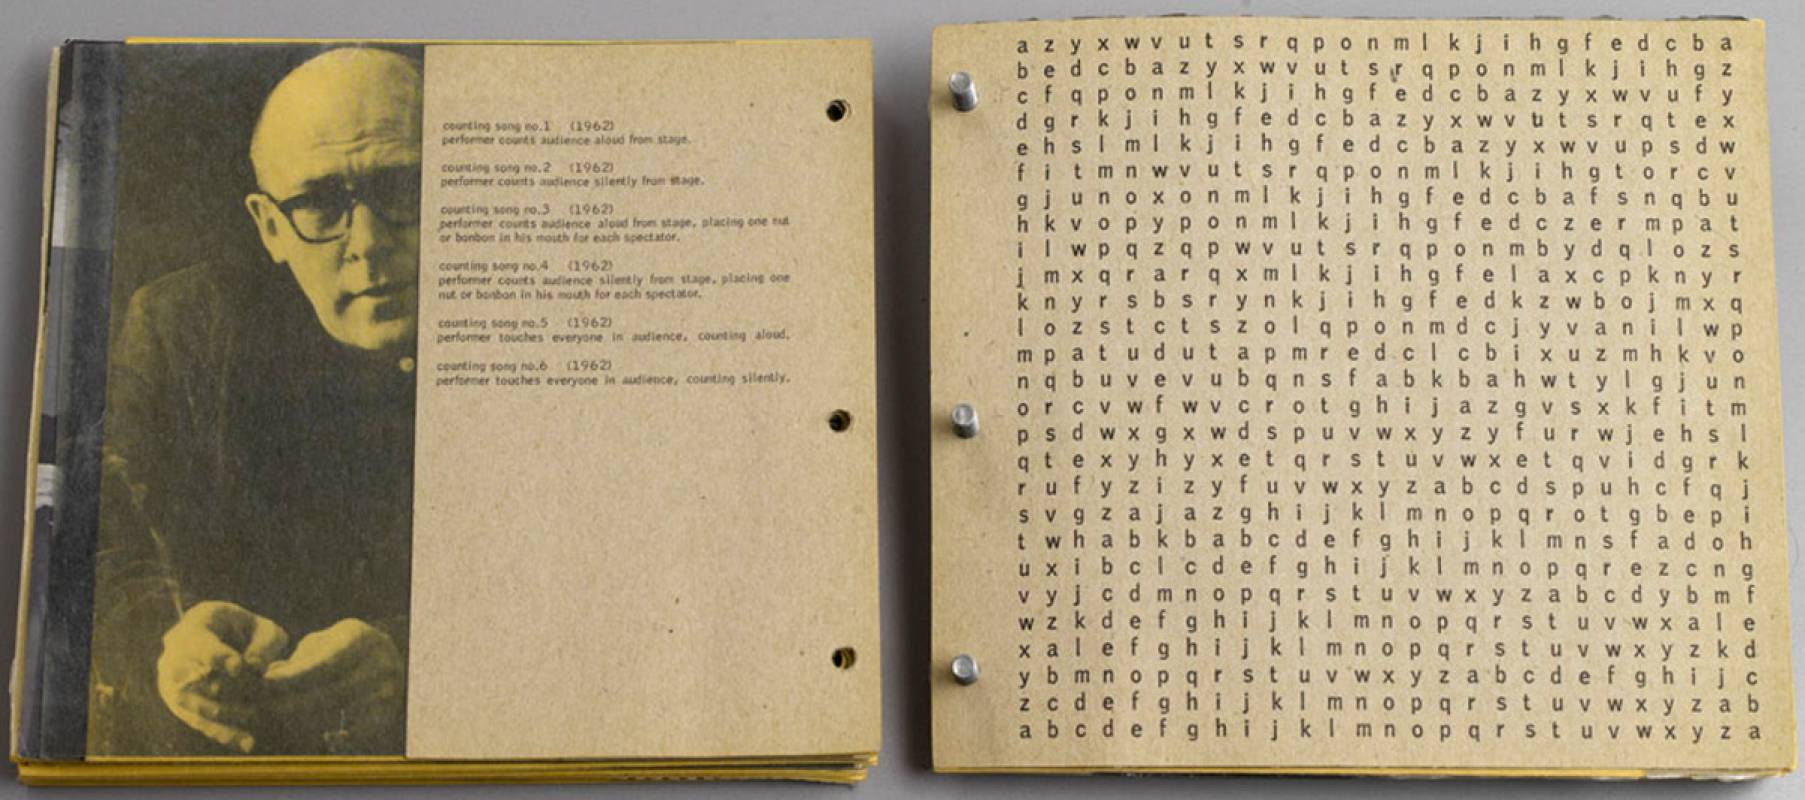 counting song no.1 (1962)
performer counts audience aloud from stage.
counting song no.2 (1962)
performer counts audience silently from stage.
counting song no.3 (1962)
performer counts audience aloud from stage, placing one nut
or bonbon in his mouth for each spectator.
counting song no.4 (1962)
performer counts audience silently from stage, placing one
nut or bonbon in his mouth for each spectator.
counting song no.5 (1962)
performer touches everyone in audience, counting aloud.
counting song no.6 (1962)
performer touches everyone in audience, counting silently.
a z y x w v u t s r q p o n m l k j i h g f e d c b a
b e d c b a z y x w v u t s r q p o n m l k j i h g z
c f q p o n m l k j i h g f e d c b a z y x w v u f y
d g r k j i h g f e d c b a z y x w v u t s r q t e x
e h s l m l k j i h g f e d c b a z y x w v u p s d w
f i t m n w v u t s r q p o n m l k j i h g t o r c v
g j u n o x o n m l k j i h g f e d c b a f s n q b u
h k v o p y p o n m l k j i h g f e d c z e r m p a t
i l w p q z q p w v u t s r q p o n m b y d q l o z s
j m x q r a r q x m l k j i h g f e l a x c p k n y r
k n y r s b s r y n k j i h g f e d k z w b o j m x q
l o z s t c t s z o l q p o n m d c j y v a n i l w p
m p a t u d u t a p m r e d c l c b i x u z m h k v o
n q b u v e v u b q n s f a b k b a h w t y l g j u n
o r c v w f w v c r o t g h i j a z g v s x k f i t m
p s d w x g x w d s p u v w x y z y f u r w j e h s l
q t e x y h y x e t q r s t u v w x e t q v i d g r k
r u f y z i z y f u v w x y z a b c d s p u h c f q j
s v g z a j a z g h i j k l m n o p q r o t g b e p i
t w h a b k b a b c d e f g h i j k l m n s f a d o h
u x i b c l c d e f g h i j k l m n o p q r e z c n g
v y j c d m n o p q r s t u v w x y z a b c d y b m f
w z k d e f g h i j k l m n o p q r s t u v w x a l e
x a l e f g h i j k l m n o p q r s t u v w x y z k d
y b m n o p q r s t u v w x y z a b c d e f g h i j c
z c d e f g h i j k l m n o p q r s t u v w x y z a b
a b c d e f g h i j k l m n o p q r s t u v w x y z a